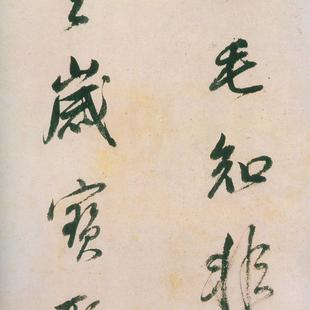 毛知非
歲寶